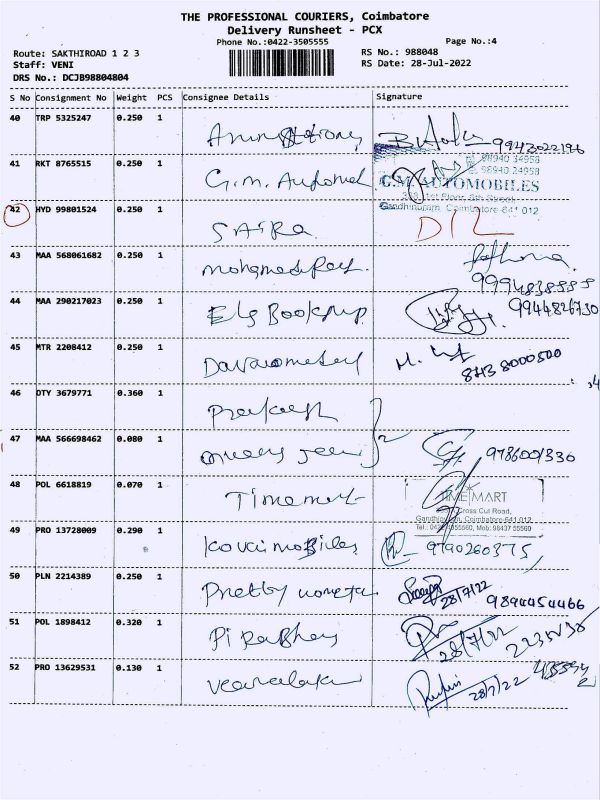 THE PROFESSIONAL COURIERS, Coimbatore
Delivery Runsheet - PCX
Phone No.:0422-3505555
Page No.:4
Route: SAKTHIROAD 1 2 3
RS No.: 988048
Staff: VENI
RS Date: 28-Jul-2022
DRS No.: DCJB98804804
S No Consignment No Weight PCS Consignee Details Signature
40 TRP 5325247 0.250 1 9943022196
41 RKT 8765515 0.250 1 G.M. Automobi
98940 34958
98940 24958
G.M. AUTOMOBILES
1st Floor, 8th Street
Gandhipuram, Coimbatore-641 012
42 HYD 99801524 0.250 1 SAIRA D/L
43 MAA 568061682 0.250 1 Fathima
44 MAA 290217023 0.250 1 Els Bookshop 9944826730
45 MTR 2208412 0.250 1 8438000500
46 DTY 3679771 0.360 1 Prakash
47 MAA 566698462 0.080 1 9786001330
48 POL 6618819 0.070 1 Timemart
TIME MART
Cross Cut Road,
Gandhipuram, Coimbatore-641 012
49 PRO 13728009 0.290 1 Kovai mobiles 9790260375
50 PLN 2214389 0.250 1 Pretty 28/7/22 9894454466
51 POL 1898412 0.320 1 28/7/22
52 PRO 13629531 0.130 1 28/7/22